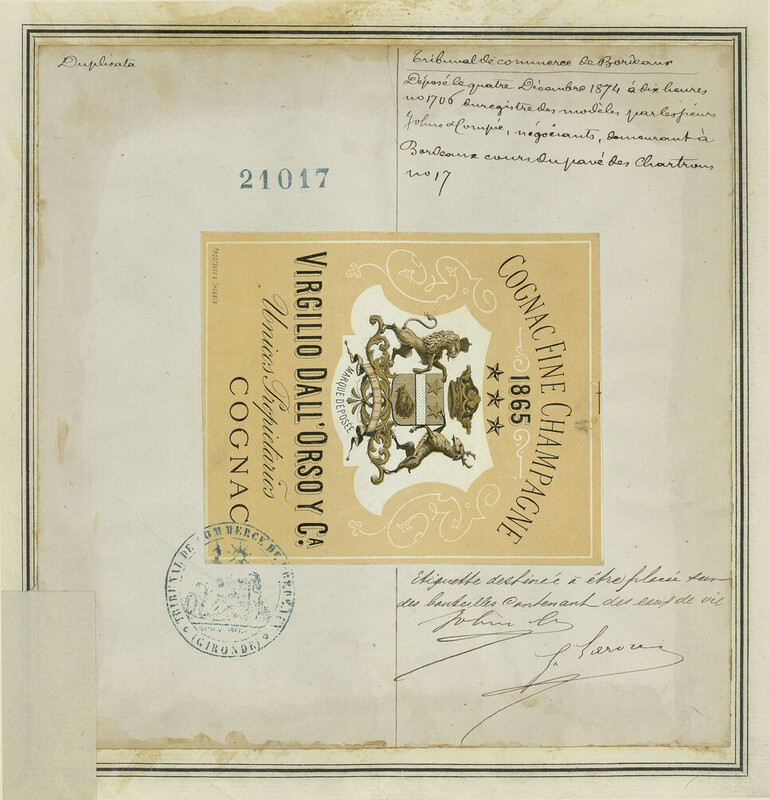 Duplicata
Tribunal de commerce de Bordeaux
Déposé le quatre Décembre 1874 à dix heures
no 1706 du registre des modèles par les sieurs
Johns & Compie, négociants, demeurant à
Bordeaux cours du pavé des Chartrons
no 17
21017
COGNAC FINE CHAMPAGNE
1865
MARQUE DÉPOSÉE
VIRGILIO DALL'ORSO Y CA.
Unicos Propietarios
COGNAC
TRIBUNAL DE COMMERCE DE BORDEAUX
(GIRONDE)
Etiquette destinée à être placée sur
des bouteilles contenant des eaux de vie